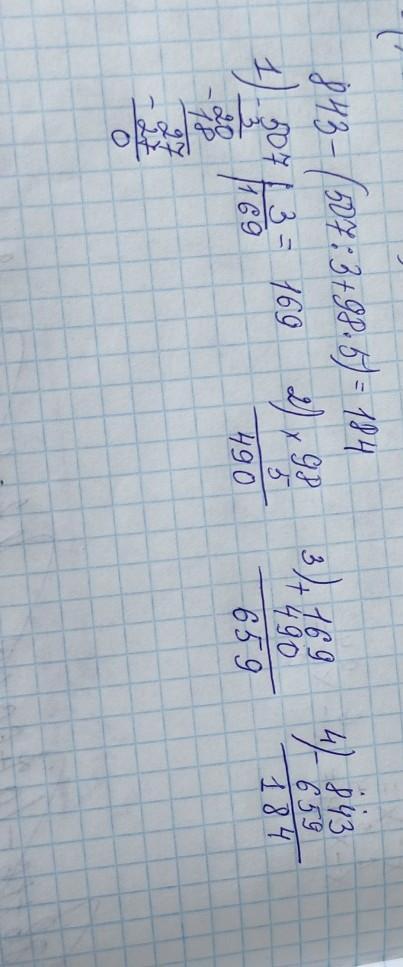 843 - (507 : 3 + 98 · 5) = 184
1) - 507 | 3 = 169
3 | 169
- 20
18
- 27
27
0
2) × 98
5
490
3) + 169
490
659
4) - 843
659
184